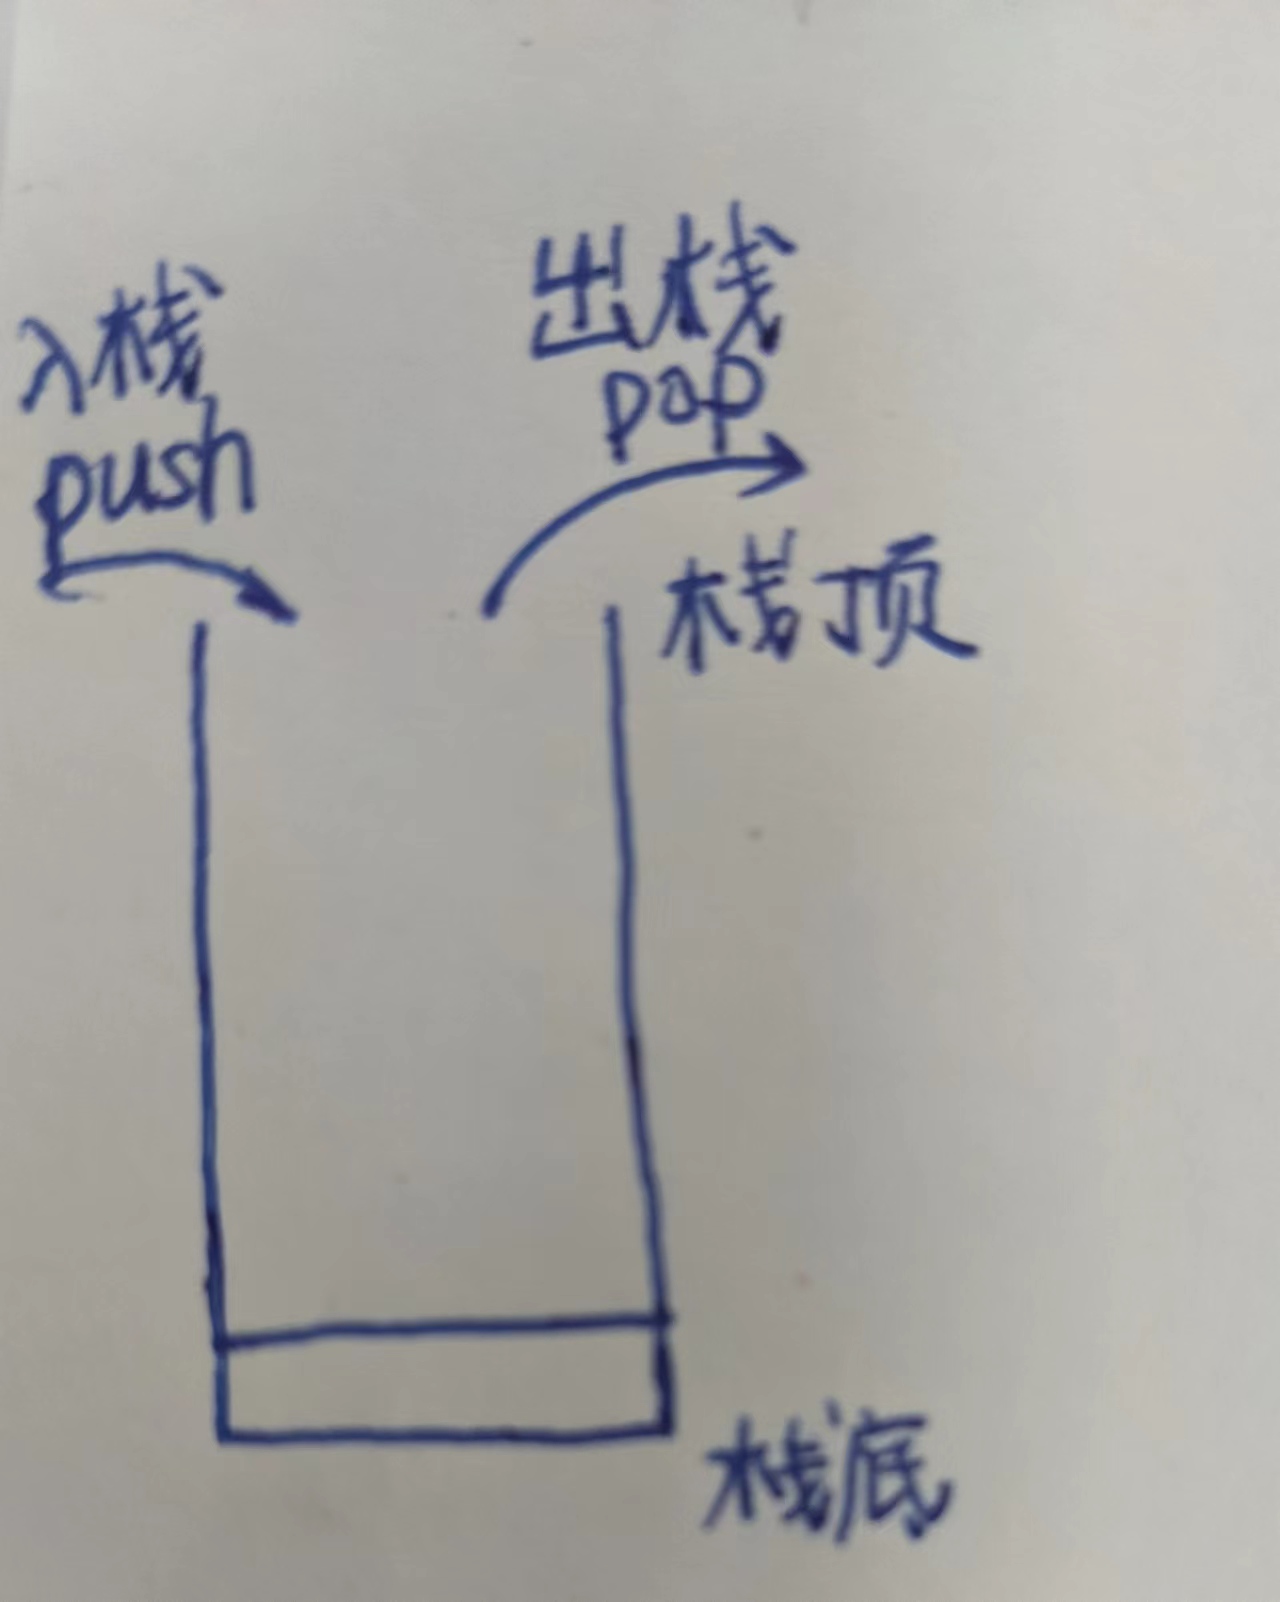 入栈
push
出栈
pop
栈顶
栈底